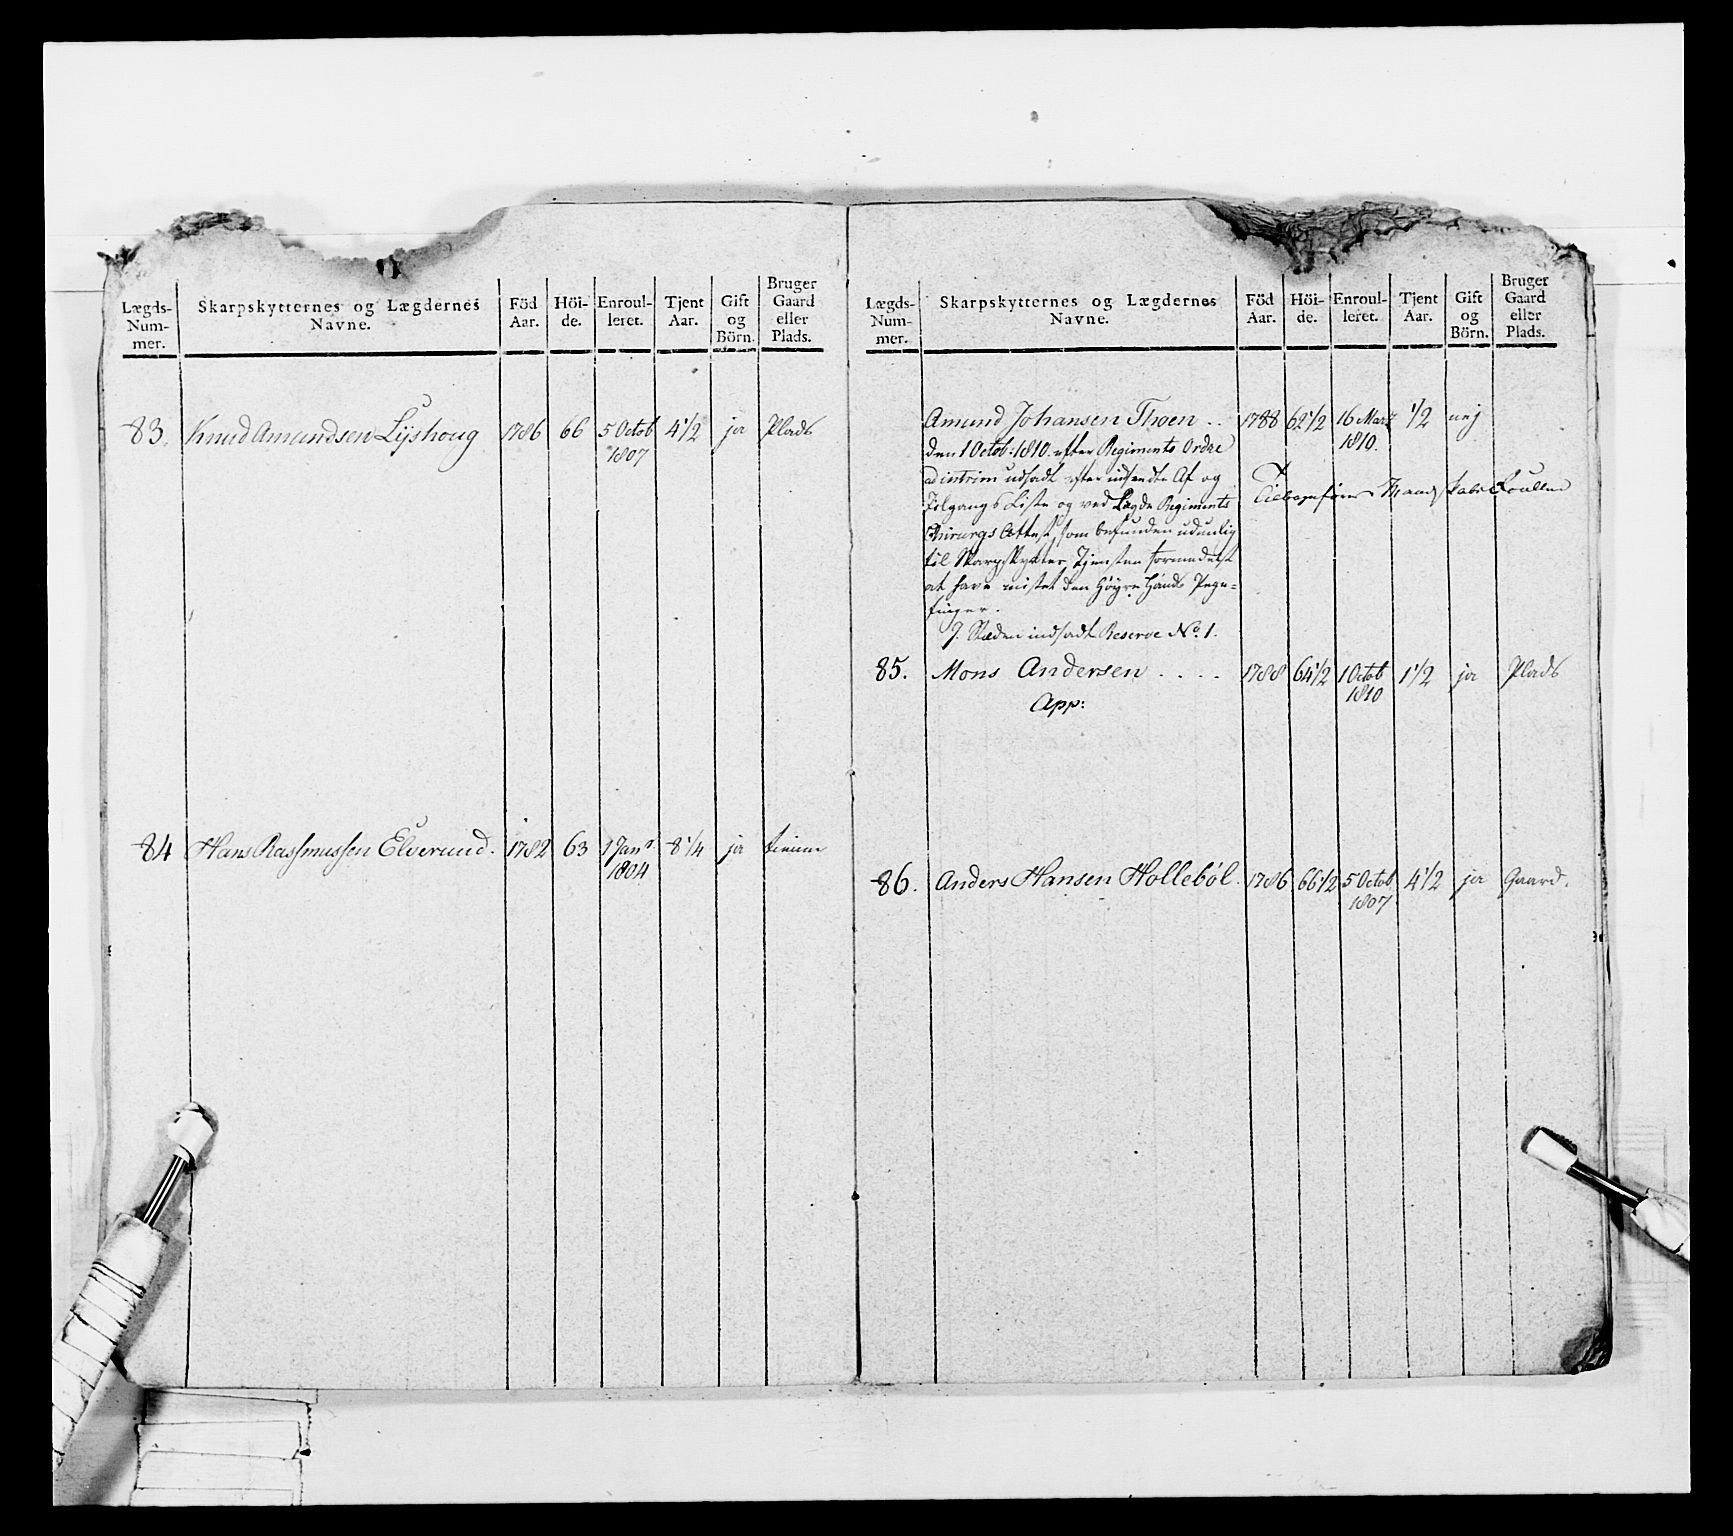 Lægds-
Num-
mer.
Skarpskytternes og Lægdernes
Navne.
Föd
Aar.
Höi-
de.
Enroul-
leret.
Tjent
Aar.
Gift
og
Börn.
Bruger
Gaard
eller
Plads.
83. Knud Amundsen Lÿshoug 1786 66 5 Octob 4 1/2 ja Plads
1807
84 Hans Rasmussen Elverund. 1782 63 1 Janr 8 1/4 ja
1804
Lægds-
Num-
mer.
Skarpskytternes og Lægdernes
Navne.
Föd
Aar.
Höi-
de.
Enroul-
leret.
Tjent
Aar.
Gift
og
Börn.
Bruger
Gaard
eller
Plads.
Amund Johansen Thoen .. 1788 62 1/2 16 Marz 1/2 nej
1810.
den 1 Octob: 1810. efter Regiments Ordre
ad intrim udsadt efter indsendte Af og
Tilgangs Liste og ved Lagde Regiments
Chirurgs Attest, som befunden udunlig
til Skarpskytter Tjenesten formedelst
at have mistet den Høyre Haands Pege-
finger.
I Stæden indsadt Reserve No. 1.
Mandskabs Roullen
85. Mons Andersen .... 1788 64 1/2 1 Octob 1 1/2 ja Plads
1810
App:
86. Anders Hansen Holleböl. 1786 66 1/2 5 Octob 4 1/2 ja Gaard.
1807